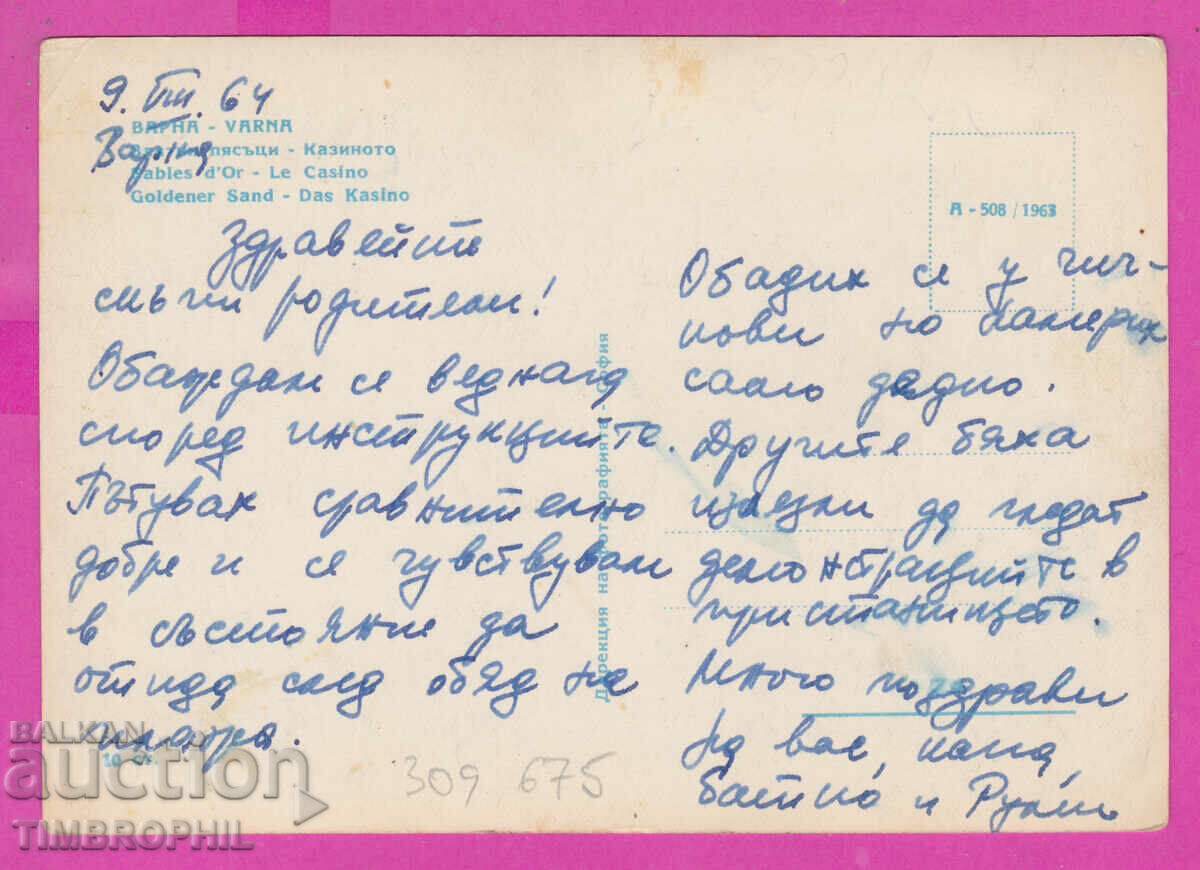 9. VIII. 64
Варна
ВАРНА - VARNA
Златни пясъци - Казиното
Sables d'Or - Le Casino
Goldener Sand - Das Kasino
Здравейте
скъпи родители!
Обаждам се веднага
според инструкциите.
Пътувах сравнително
добре и се чувствувам
в състояние да
отида след обяд на
плажа.
A - 508 / 1963
Обадих се у чич-
нови но намерих
само дядно.
Другите бяха
излезли да гледат
демонстрациите в
пристанището.
Много поздрави
на вас, кака,
батно и Румы
Дирекция на фотографията - София
10 ст.
309 675
BALKAN
auction
TIMBROPHIL